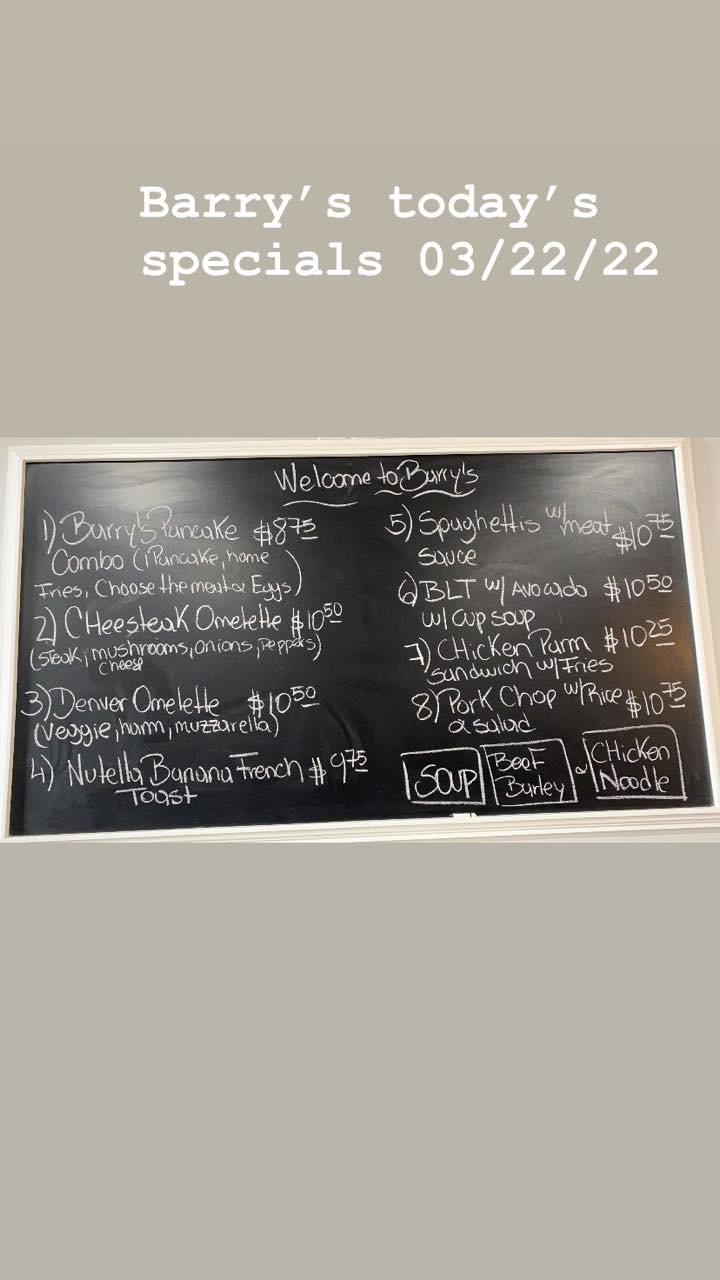 Barry’s today’s
specials 03/22/22
Welcome to Barry's
1) Barry's Pancake $8.75
Combo (1 Pancake, home
Fries, Choose the meat & Eggs)
2) CHeesteak Omelette $10.50
(steak, mushrooms, onions, Peppers)
cheese
3) Denver Omelette $10.50
(veggie, ham, muzzarella)
4) Nutella Banana French $9.75
Toast
5) Spaghettis w/meat $10.75
sauce
6) BLT w/ Avocado $10.50
w/ cup soup
7) CHicken Parm $10.25
sandwich w/ Fries
8) Pork Chop w/ Rice $10.75
& salad
SOUP Beef & CHicken
Barley Noodle